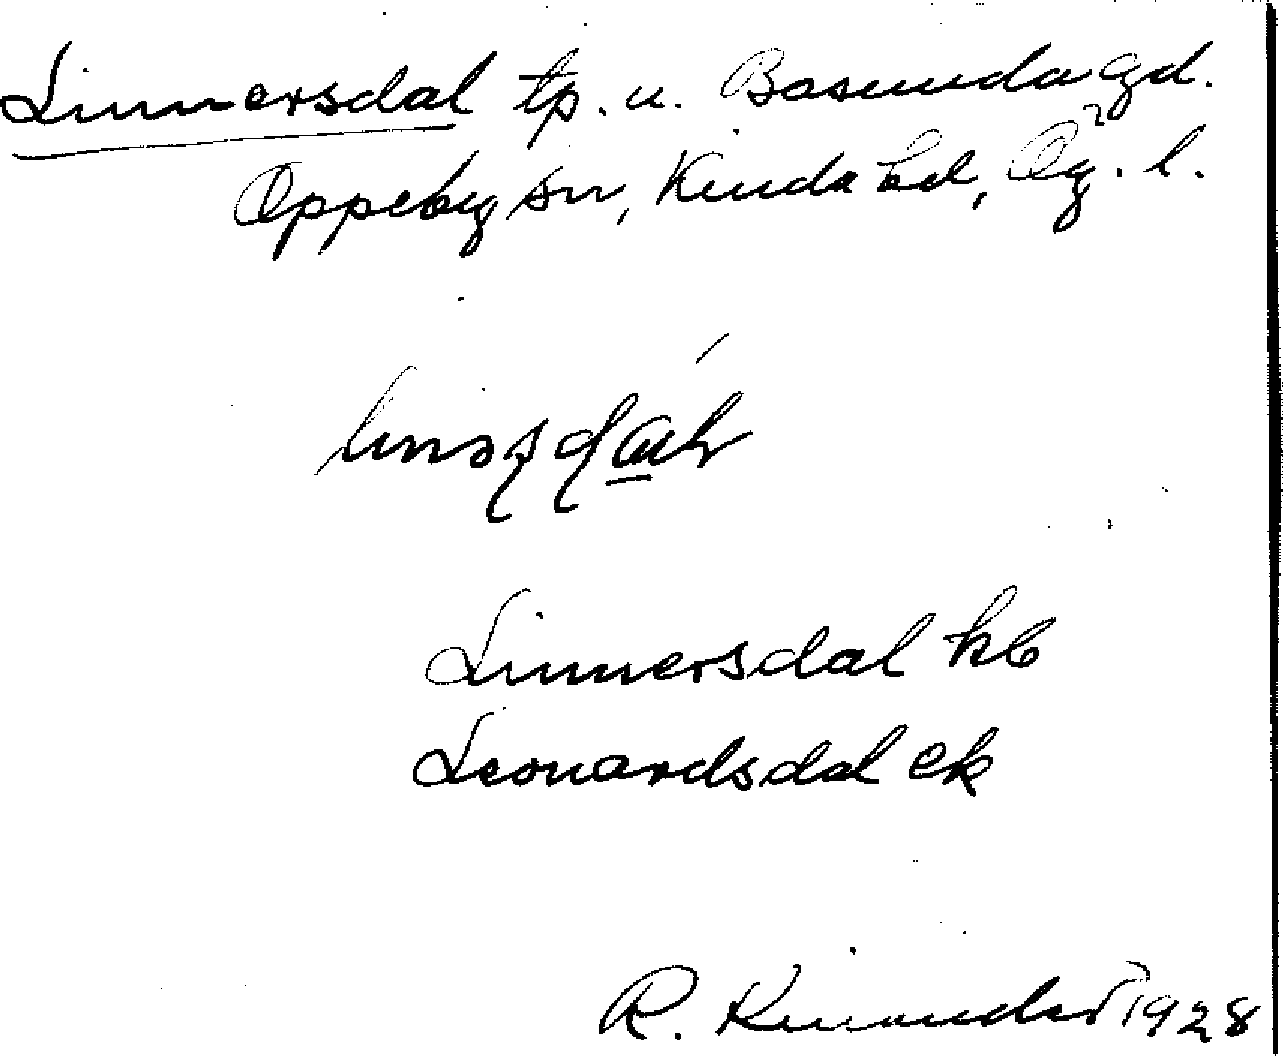 Linnersdal tp. u. Basunda gd.
Oppeby sn, Kinda hd, Ög. l.
Linnersdal kb
Leonardsdal ek
R. Kinander 1928